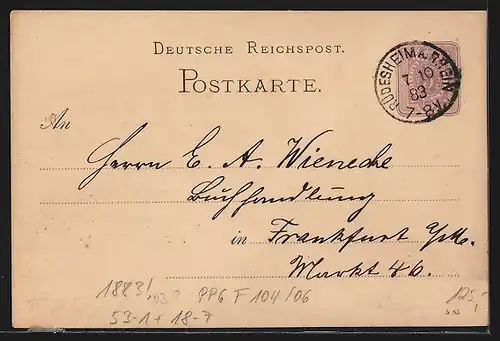 DEUTSCHE REICHSPOST.
POSTKARTE.
RÜDESHEIM A. RHEIN
7 10
83
7-8V.
An
Herrn E. A. Wienecke
Buchhandlung
in Frankfurt a/M.
Markt 46.
1883!
PP6 F 104/06
125,-
53-1+18-7